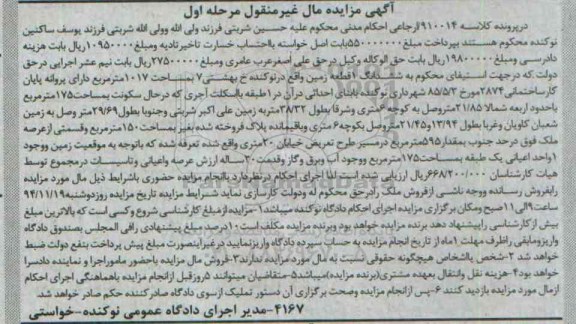 آگهی مزایده مال غیرمنقول مرحله اول
درپرونده کلاسه ۹۱۰۰۱۴ارجاعی احکام مدنی محکوم علیه حسین شربتی فرزند ولی الله وولی الله شربتی فرزند یوسف ساکنین
نوکنده محکوم هستند بپرداخت مبلغ ۵۵۰۰۰۰۰۰۰بابت اصل خواسته بااحتساب خسارت تاخیرتادیه ومبلغ۱۰۹۵۰۰۰۰ریال بابت هزینه
دادرسی ومبلغ۱۹۸۰۰۰۰۰ریال بابت حق الوکاله وکیل درحق علی اصغرعرب عامری ومبلغ۲۷۵۰۰۰۰۰ریال بابت نیم عشر اجرایی درحق
دولت که درجهت استیفای محکوم به ششدانگ ۱قطعه زمین واقع درنوکنده خ بهشتی۷ بمساحت ۱۰۱۷مترمربع دارای پروانه پایان
کارساختمانی۲۸۷۴مورخ ۸۵/۵/۳ شهرداری نوکنده بابنای احداثی درآن در۱طبقه بااسکلت آجری که درحال سکونت بمساحت۱۷۵مترمربع
باحدود اربعه شمالا۲۱/۸۵متروصل به کوچه۶متری وشرقا بطول۳۸/۳۲متربه زمین علی اکبر شربتی وجنوبا بطول۲۹/۶۹متر وصل به زمین
شعبان کاویان وغربا بطول ۱۳/۹۴و۲۱/۴۵متروصل بکوچه۶متری وباقیمانده پلاک فروخته شده بغیر بمساحت۱۵۰مترمربع وقسمتی ازعرصه
ملک فوق درحد جنوب بمقدار۵۹۵مترمربع درمسیر طرح تعریض خیابان ۲۰متری واقع شده تعرفه شده که باتوجه به موقعیت زمین ووجود
۱واحد اعیانی یک طبقه بمساحت۱۷۵مترمربع ووجود آب وبرق وگاز وقدمت۳۰ساله ارزش عرصه واعیانی وتاسیسات درمجموع توسط
هیات کارشناسان ۶۶۸/۲۰۰/۰۰۰ریال ارزیابی شده است لذا اجرای احکام درنظردارد باانجام مزایده حضوری باشرایط ذیل مال مورد مزایده
رابفروش رسانده ووجه ناشی ازفروش ملک رادرحق محکوم له ودولت کارسازی نماید شرایط مزایده تاریخ مزایده روزدوشنبه۹۴/۱۱/۱۹
ساعت۹الی۱۱صبح ومکان برگزاری مزایده اجرای احکام دادگاه نوکنده میباشد۱-مزایده ازمبلغ کارشناسی شروع وکسی است که بالاترین مبلغ
بیش ازکارشناسی راپیشنهاد دهد برنده مزایده خواهد بود وبرنده مزایده مکلف است۱۰درصد مبلغ پیشنهادی رافی المجلس بصندوق دادگاه
واریزومابقی راظرف مهلت ۱ماه از تاریخ انجام مزایده به حساب سپرده دادگاه واریزنمایید درغیراینصورت مبلغ پیش پرداخت بنفع دولت ضبط
خواهد شد ۲-شخص یااشخاص هیچگونه حقوقی نسبت به مال مورد مزایده ندارند۳-فروش مال مزایده باحضور ماموراجرا و نماینده دادسرا
خواهد بود۴-هزینه نقل وانتقال بعهده مشتری(برنده مزایده)میباشد۵-متقاضیان میتوانند ۵روزقبل ازانجام مزایده باهماهنگی اجرای احکام
ازمال مورد مزایده بازدید کنند ۶-پس ازانجام مزایده وصحت برگزاری آن دستور تملیک ازسوی دادگاه صادرکننده حکم صادر خواهد شد.
۴۱۶۷-مدیر اجرای دادگاه عمومی نوکنده-خواستی